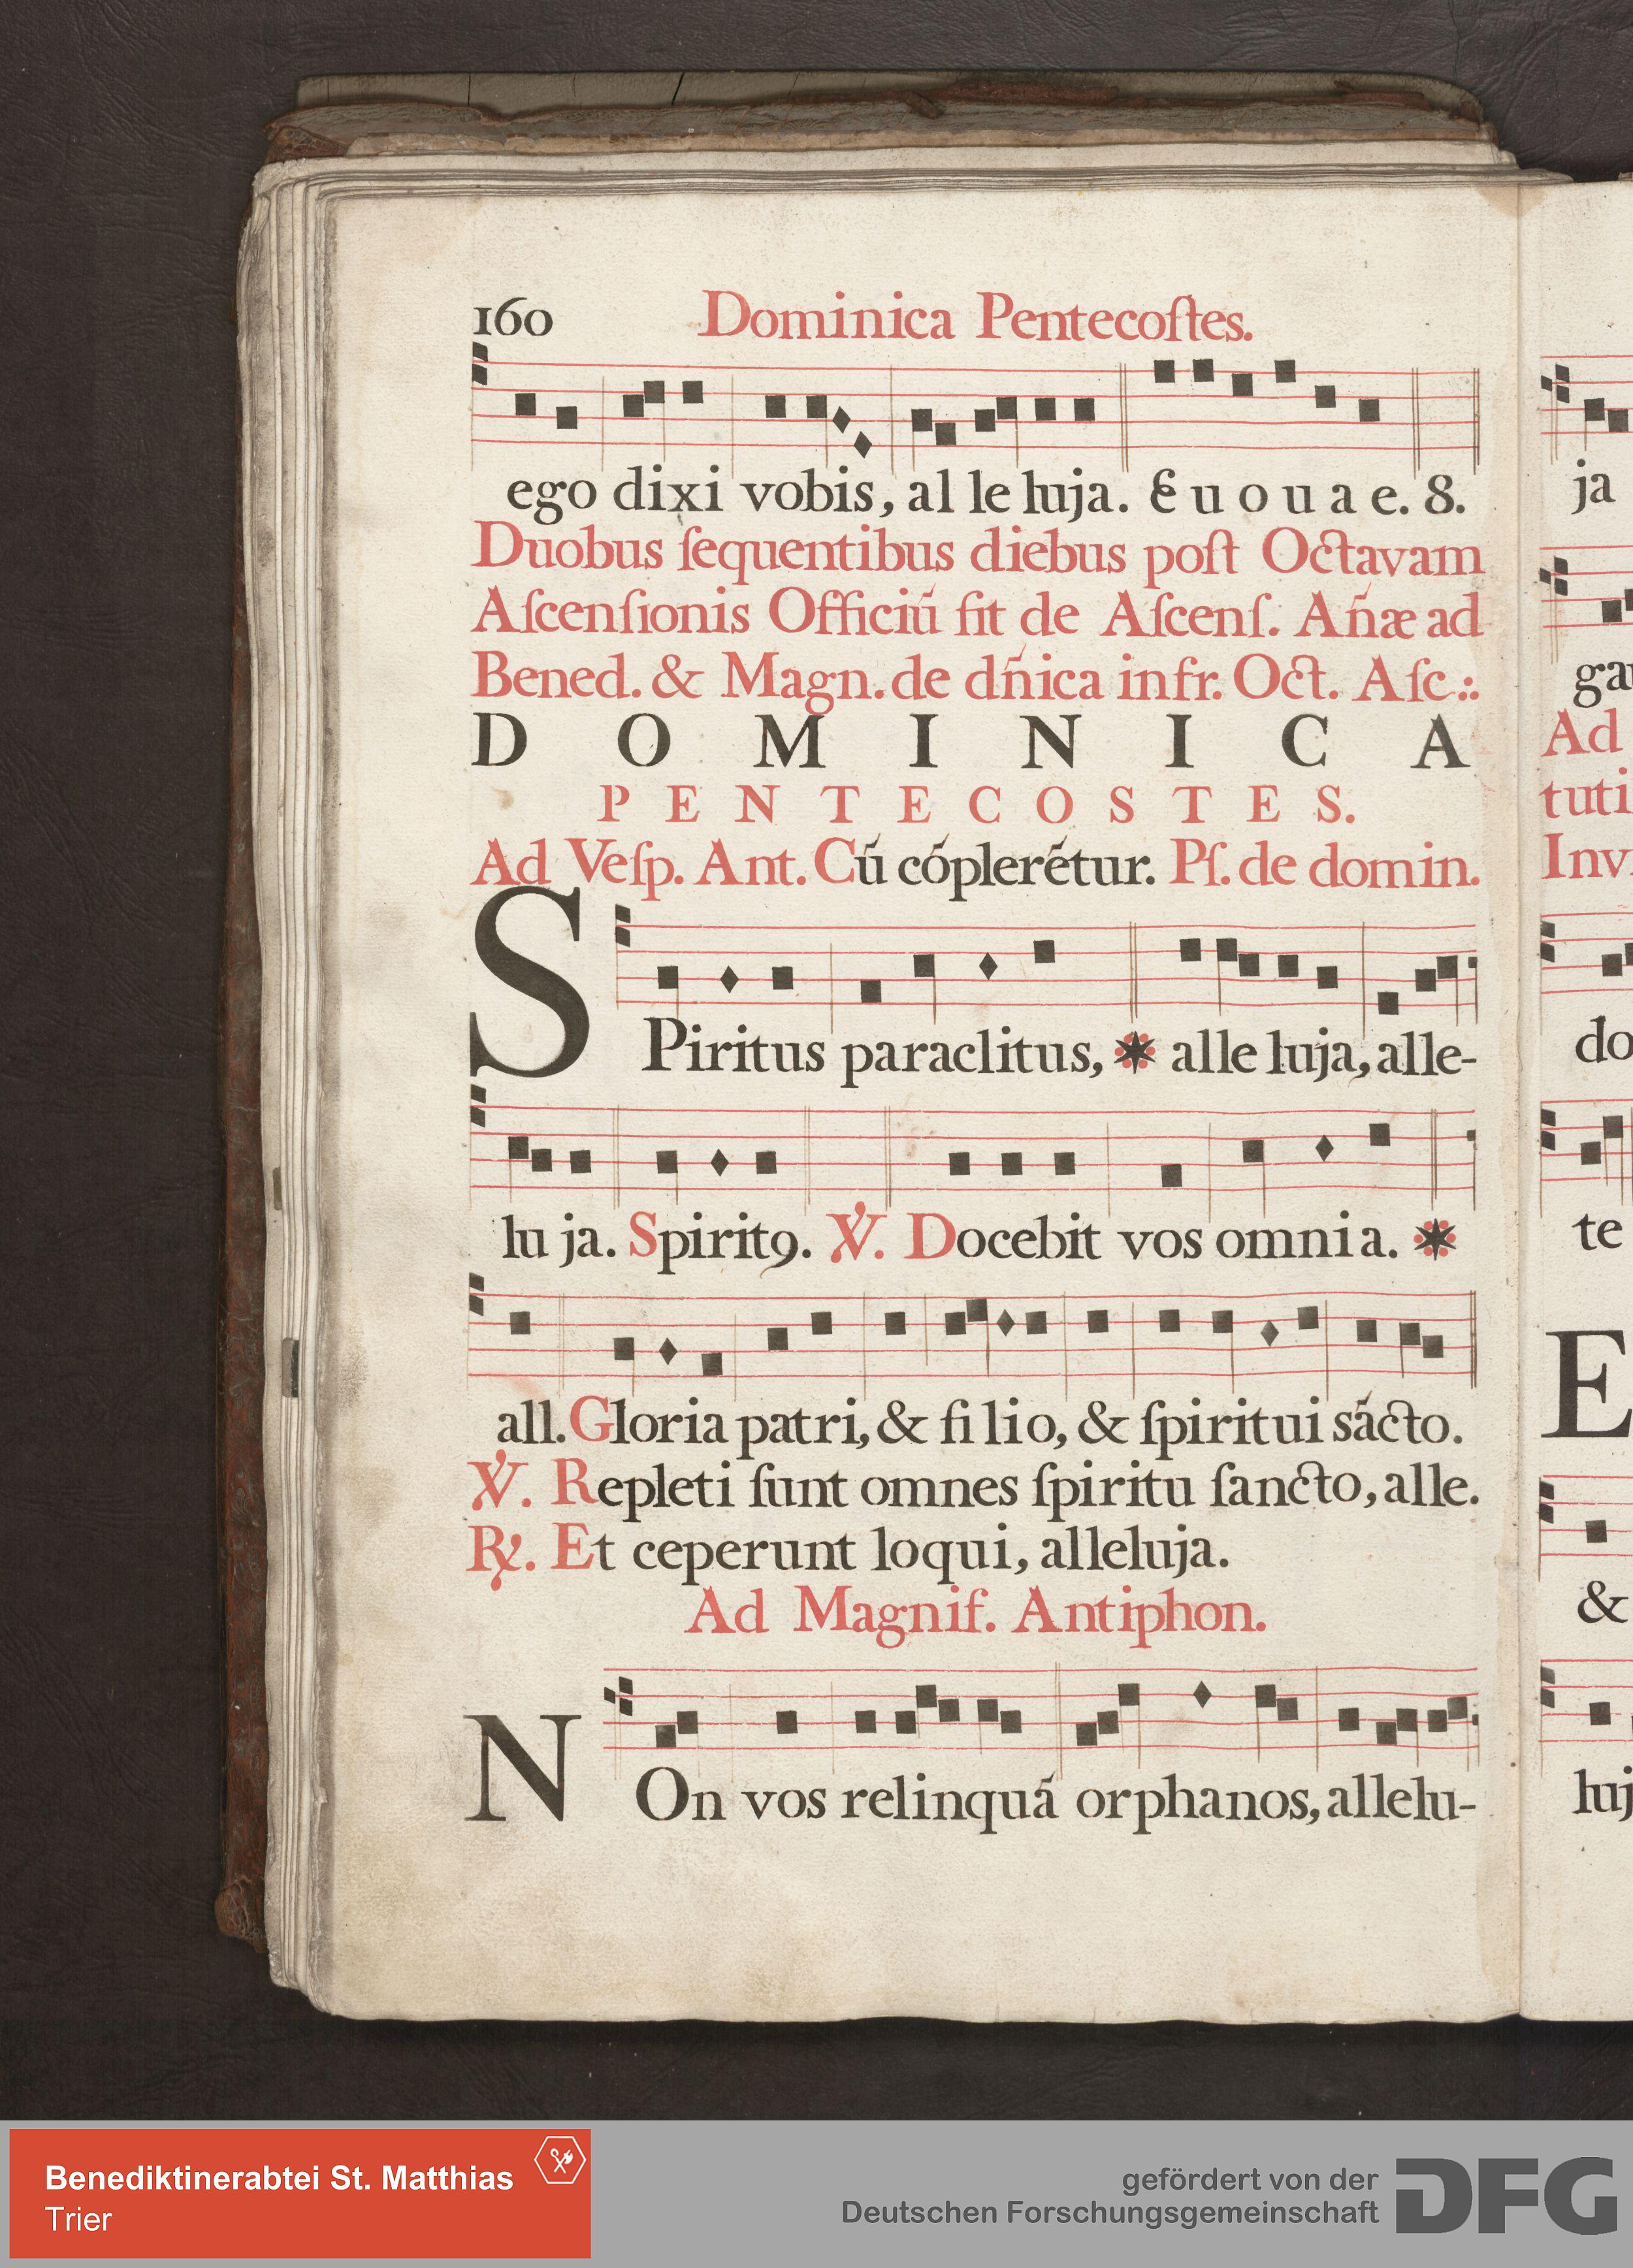 160 Dominica Pentecoſtes.
ego dixi vobis, al le luja. E u o u a e. 8.
Duobus ſequentibus diebus poſt Octavam
Aſcenſionis Officiú fit de Aſcenſ. Añæ ad
Bened. & Magn. de dñica infr. Oct. Aſc.:.
D O M I N I C A
P E N T E C O S T E S.
Ad Veſp. Ant. Cú cópleretur. Pſ. de domin.
SPiritus paraclitus, * alle luja, alle-
lu ja. Spirit9. V. Docebit vos omnia. *
all. Gloria patri, & fi lio, & ſpiritui sácto.
V. Repleti ſunt omnes ſpiritu ſancto, alle.
R. Et ceperunt loqui, alleluja.
Ad Magnif. Antiphon.
NOn vos relinquá orphanos, allelu-
ja
ga
Ad
tuti
Inv.
do
te
E
&
luj
Benediktinerabtei St. Matthias
Trier
gefördert von der
Deutschen Forschungsgemeinschaft
DFG